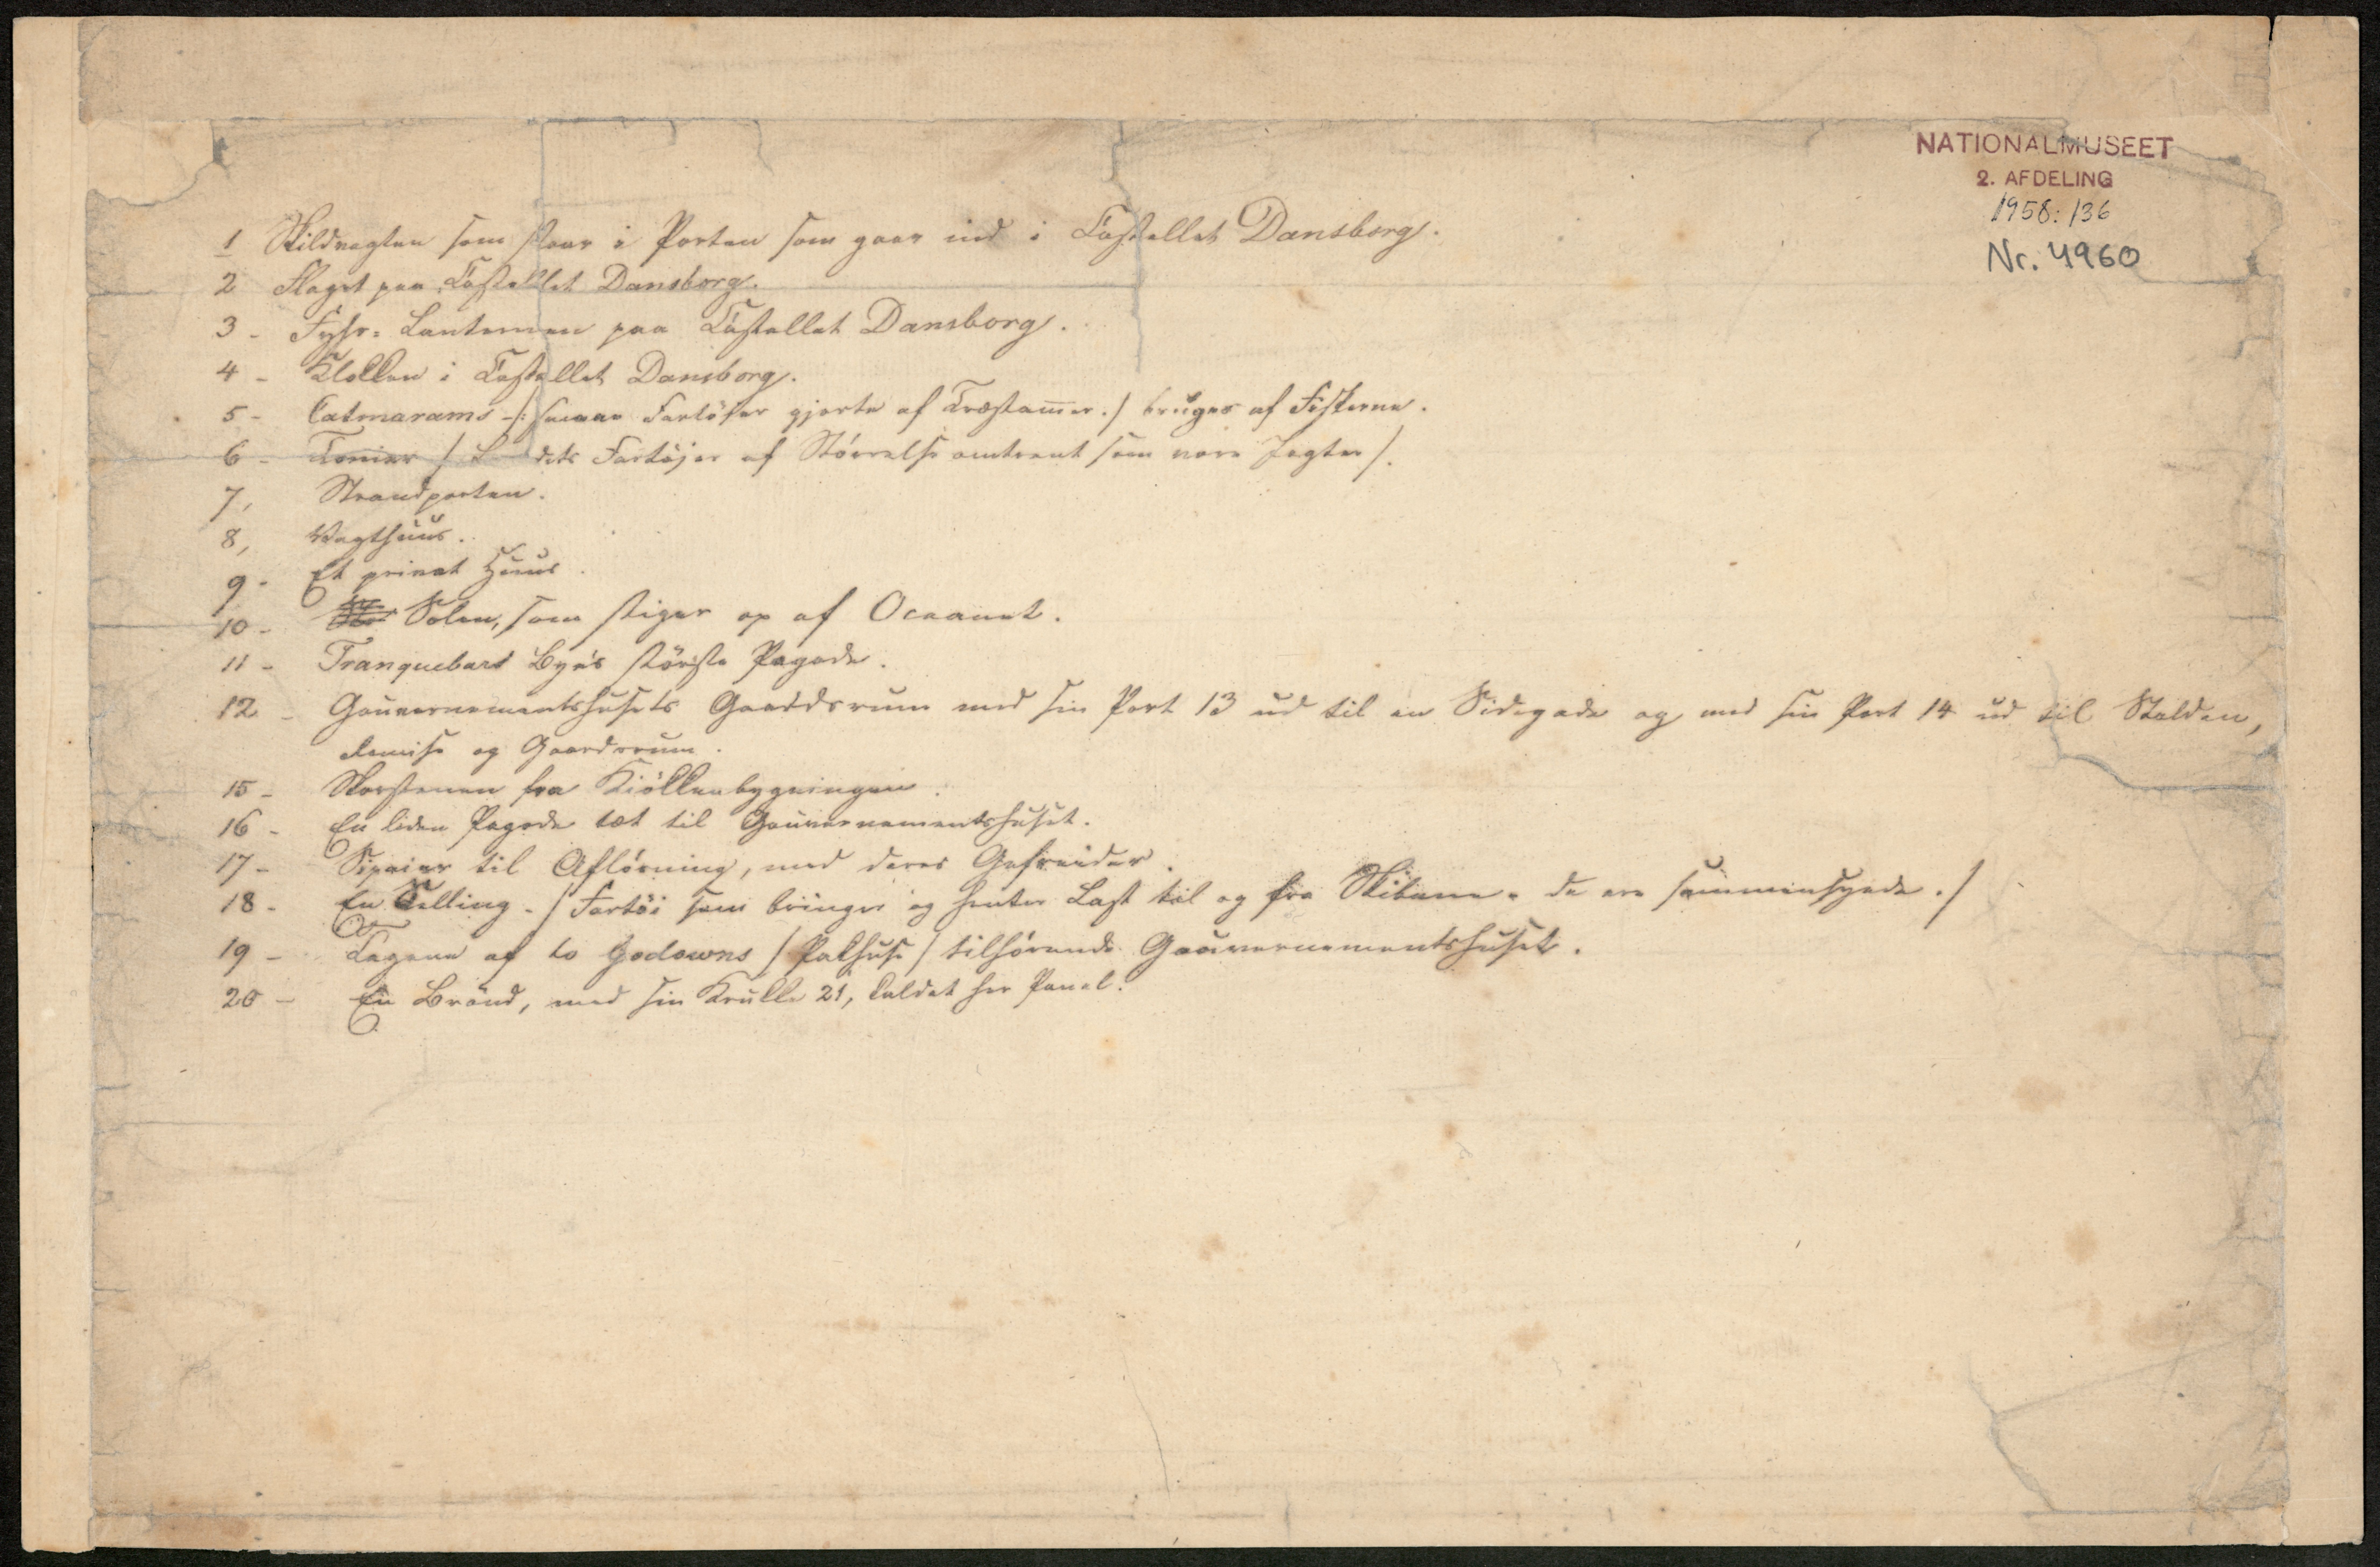 NATIONALMUSEET
2. AFDELING
1958: 136
Nr. 4960
1 Skildvagten som staar i Porten som gaar ind i Castellet Dansborg.
2 Flaget paa Castellet Dansborg.
3 - Fyhr-Lanternen paa Castellet Dansborg.
4 - Klokken i Castellet Dansborg.
5 - Catmarams -/: Fartöjer gjorte af Træstam̅er ./ bruges af Fiskerne.
6 - / dets Fartöjer af Störrelse omtrent som vore Jagter /.
7, Strandporten.
8, Vagthuus.
9 - Et privat Huus.
10 - Solen, som stiger op af Oceanet.
11 - Tranquebars Bye's störste Pagode.
12 - Gouvernementshusets Gaardsrum med sin Port 13 ud til en Sidegade og med sin Port 14 ud til Stalden,
Remise og Gaardsrum.
15 - Skorstenen fra Kiökkenbygningen.
16 - En liden Pagode tæt til Gouvernementshuset.
17 - Sipaier til Aflösning, med deres Gefreider.
18 - En Selling - / Fartöi som bringer og henter Last til og fra Skibene - de ere sammensyede ./
19 - Tagene af to Godowns / Pakhuse / tilhörende Gouvernementshuset.
20 - En Brönd, med sin Krukke 21, kaldet her Panel.